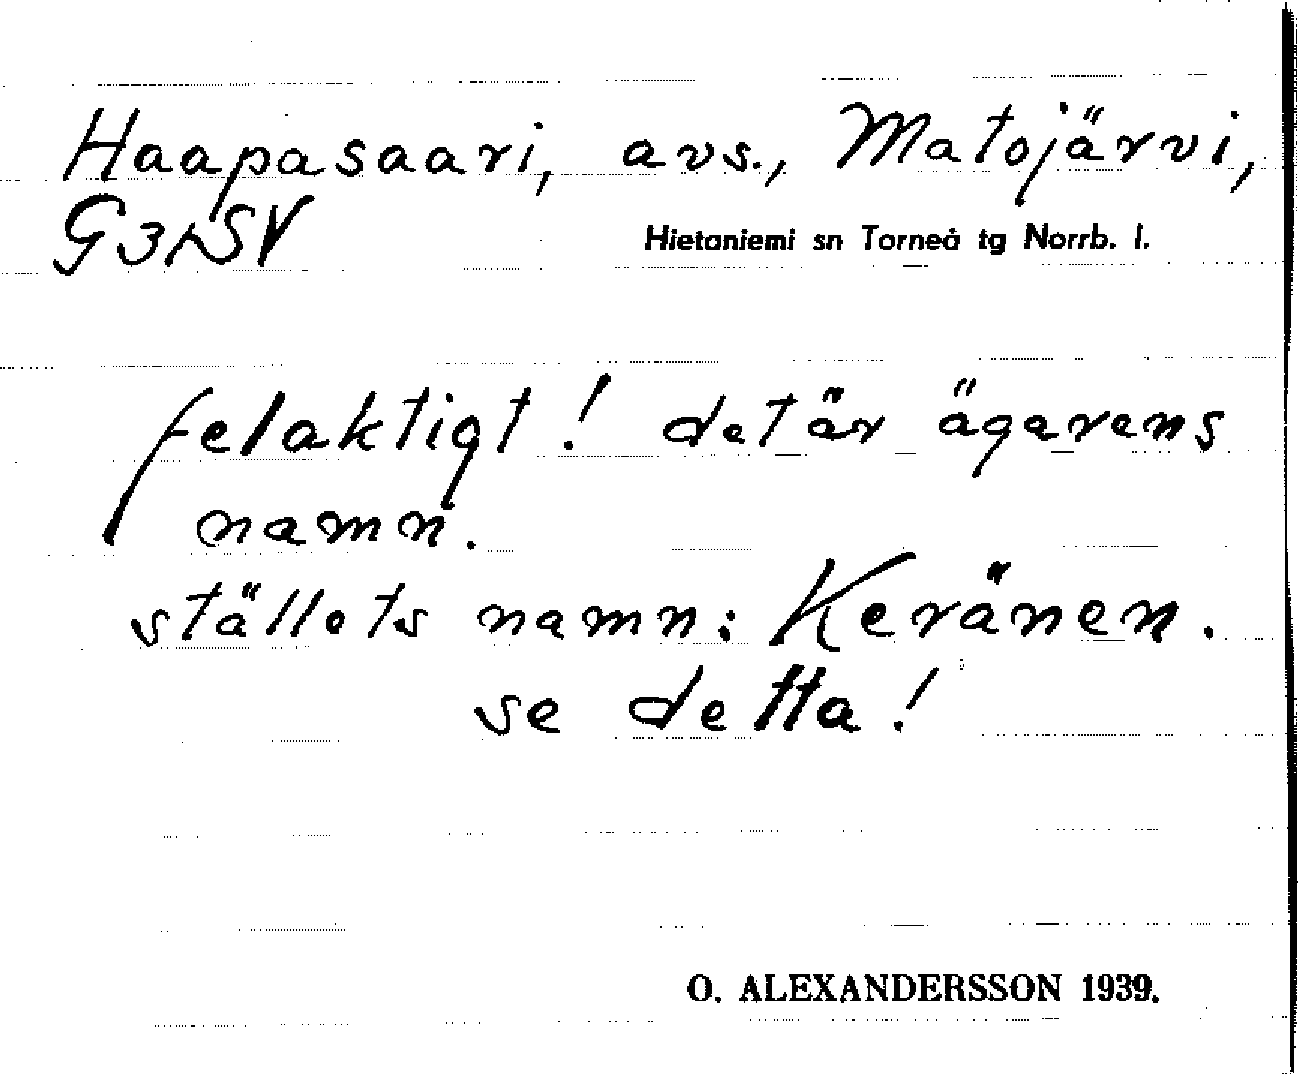 Haapasaari, avs., Matojärvi,
G31SV
Hietaniemi sn Torneå tg Norrb. l.
felaktigt! det är ägarens
namn.
ställets namn: Keränen.
se detta!
O. ALEXANDERSSON 1939.